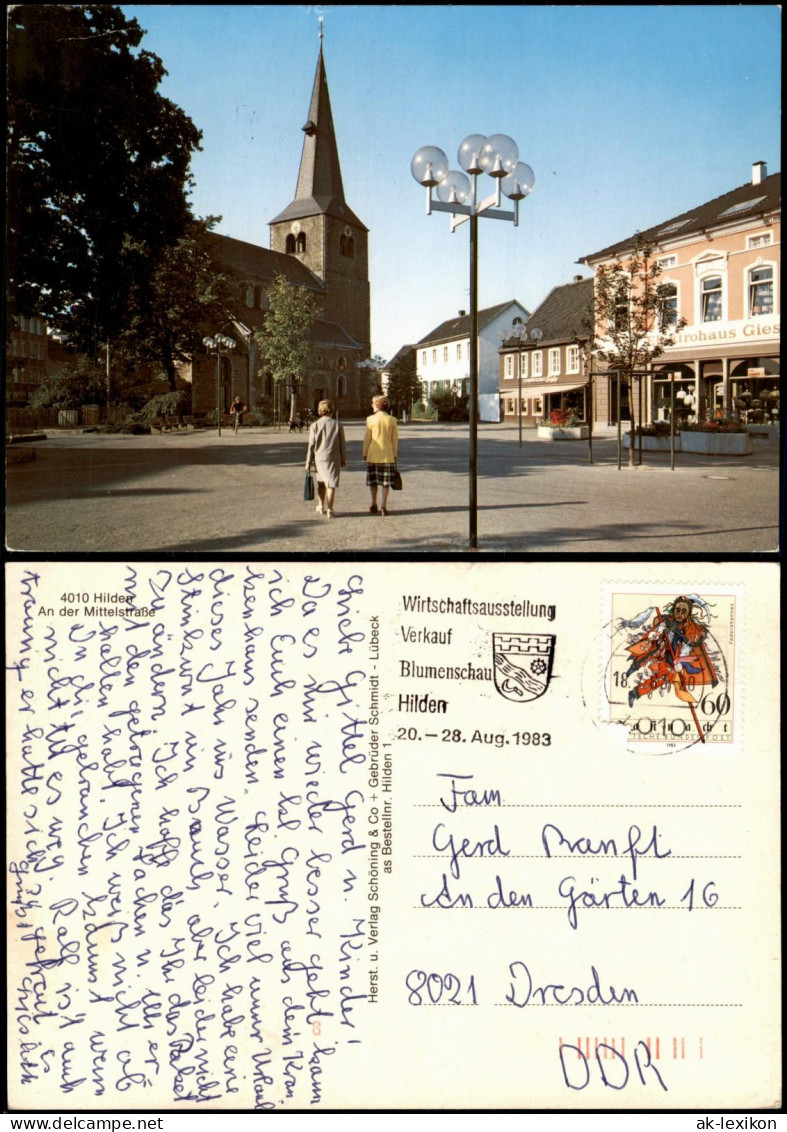 trohaus Gies
4010 Hilden
An der Mittelstraße
Liebe Gittel Gerd u. Kinder!
Da es mir wieder besser geht kann
ich Euch einen lb. Gruß aus dem Kran
kenhaus senden. Leider viel unser Urlaub
dieses Jahr ins Wasser. Ich habe eine
im Bauch, aber leider nicht
zu ändern. Ich hoffe das Ihr das Paket
mit den getragenen Sachen u. er
halten habt. Ich weiß nicht ob
Du die gebrauchen kannst wenn
nicht tu es weg. Ralf ist auch
traurig er hatte sich gefreut
Herst. u. Verlag Schöning & Co + Gebrüder Schmidt - Lübeck
as Bestellnr. Hilden 1
Wirtschaftsausstellung
Verkauf
Blumenschau
Hilden
20. – 28. Aug. 1983
18.
4010
60
Fam
Gerd Branft
An den Gärten 16
8021 Dresden
DDR
www.ansichtskarten-lexikon.de
ak-lexikon